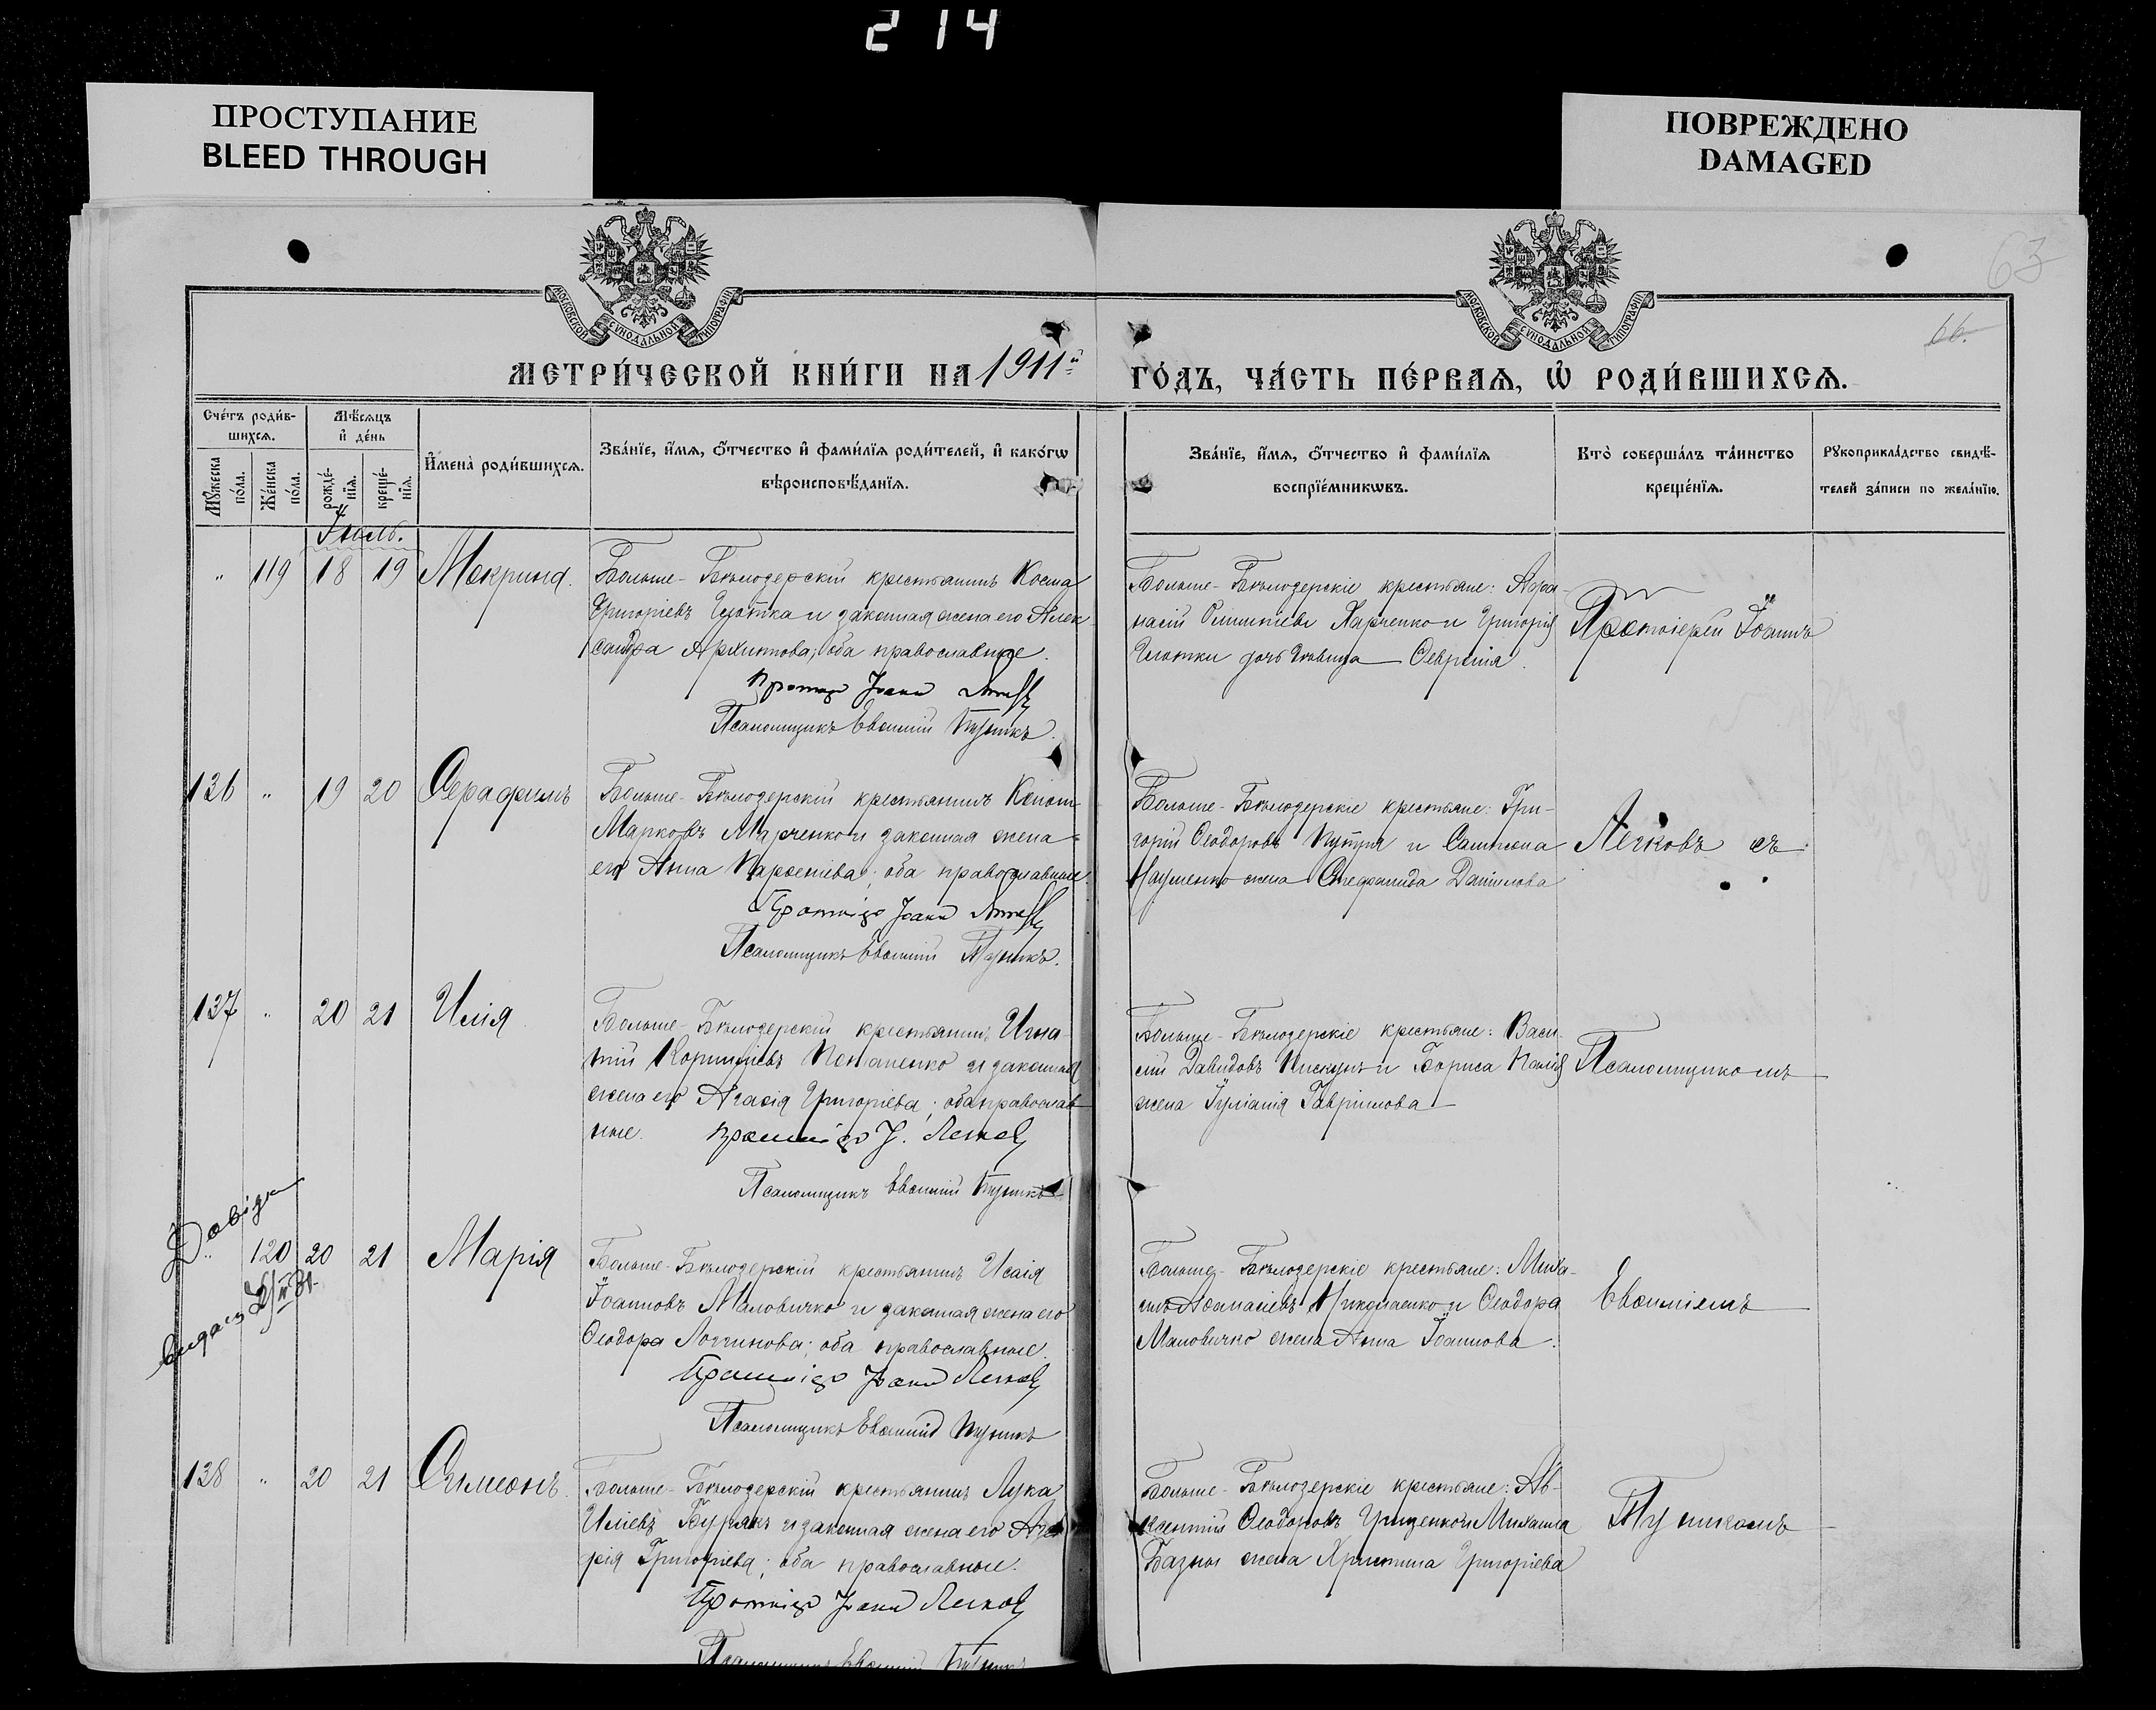 214
ПРОСТУПАНИЕ
BLEED THROUGH
ПОВРЕЖДЕНО
DAMAGED
63
66.
МОСКОВСКОЙ СѴНОДАЛЬНОЙ ТИПОГРАФІИ
МОСКОВСКОЙ СѴНОДАЛЬНОЙ ТИПОГРАФІИ
МЕТРИ́ЧЕСКОЙ КНИ́ГИ НА 1911й
ГО́ДЪ, ЧА́СТЬ ПЕ́РВАѦ, Ѡ҆ РОДИ́ВШИХСѦ.
Сче́тъ роди́в-
шихсѧ.
Мѣ́сѧцъ
и҆ де́нь
Мꙋ́жеска
по́ла.
Же́нска
по́ла.
рожде́-
нїѧ.
креще́-
нїѧ.
И҆мена̀ роди́вшихсѧ.
Зва́нїе, и҆́мѧ, ѻ҆́тчество и҆ фами́лїѧ роди́телей, и҆ како́гѡ
вѣроисповѣ́данїѧ.
Зва́нїе, и҆́мѧ, ѻ҆́тчество и҆ фами́лїѧ
воспрїе́мникѡвъ.
Кто̀ соверша́лъ та́инство
креще́нїѧ.
Рꙋкоприкла́дство свидѣ́-
телей за́писи по жела́нїю.
Іюль.
" 119 18 19 Макрина.
Больше-Бѣлозерскій крестьянинъ Косма
Григоріевъ и законная жена его Алек-
сандра Архипова; оба православные.
Протоіер Іоанн
Псаломщикъ Евѳимій Пушикъ.
Больше-Бѣлозерскіе крестьяне: Аѳа-
насій Харченко и Григорія
дочь дѣвица Евфимія.
Протоіерей Іоаннъ
136 " 19 20 Серафимъ
Больше-Бѣлозерскій крестьянинъ
Марковъ Марченко и законная жена
его Анна Парѳеніева; оба православные.
Протоіер Іоанн
Псаломщикъ Евѳимій Пушикъ.
Больше-Бѣлозерскіе крестьяне: Гри-
горій Ѳеодоровъ и Сампсона
Науменко жена Стефанида Даніилова
Лечковъ съ
137 " 20 21 Илія
Больше-Бѣлозерскій крестьянинъ Игна-
тій Корниліевъ Потапенко и законная
жена его Агаѳія Григоріева; оба православ-
ные. Протоіер І.
Псаломщикъ Евѳимій Пушикъ
Больше-Бѣлозерскіе крестьяне: Васи-
лій Давидовъ Пискунъ и Бориса Палія
жена Іуліанія Гавріилова
Псаломщикомъ
Довідк
видана
" 120 20 21 Марія
Больше-Бѣлозерскій крестьянинъ Исаія
Іоанновъ Маловичко и законная жена его
Ѳеодора Логгинова; оба православные.
Протоіер Іоанн
Псаломщикъ Евѳимій Пушикъ
Больше-Бѣлозерскіе крестьяне: Миха-
илъ Аѳанасіевъ и Ѳеодора
Маловичко жена Анна Іоаннова.
Евѳиміемъ
138 " 20 21 Симеонъ.
Больше-Бѣлозерскій крестьянинъ Лука
Иліевъ Бурякъ и законная жена его
Григоріева; оба православные.
Протоіер Іоанн
Псаломщикъ Евѳимій Пушикъ
Больше-Бѣлозерскіе крестьяне: Ав-
ксентій Ѳеодоровъ Гриценко и Михаила
жена Христина Григоріева
Пушикомъ